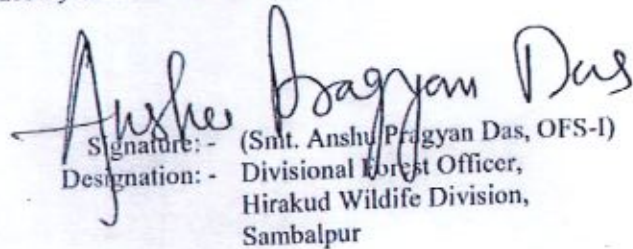 Anshu Pragyan Das
Signature: - (Smt. Anshu Pragyan Das, OFS-I)
Designation: - Divisional Forest Officer,
Hirakud Wildife Division,
Sambalpur